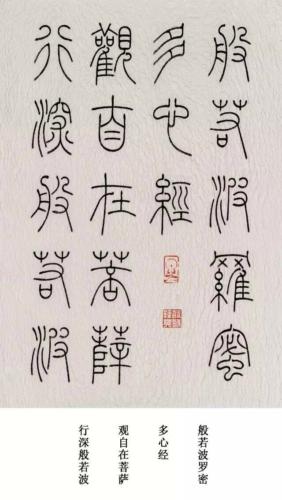 般若波羅蜜
多心經
觀自在菩薩
行深般若波
般若波罗密
多心经
观自在菩萨
行深般若波